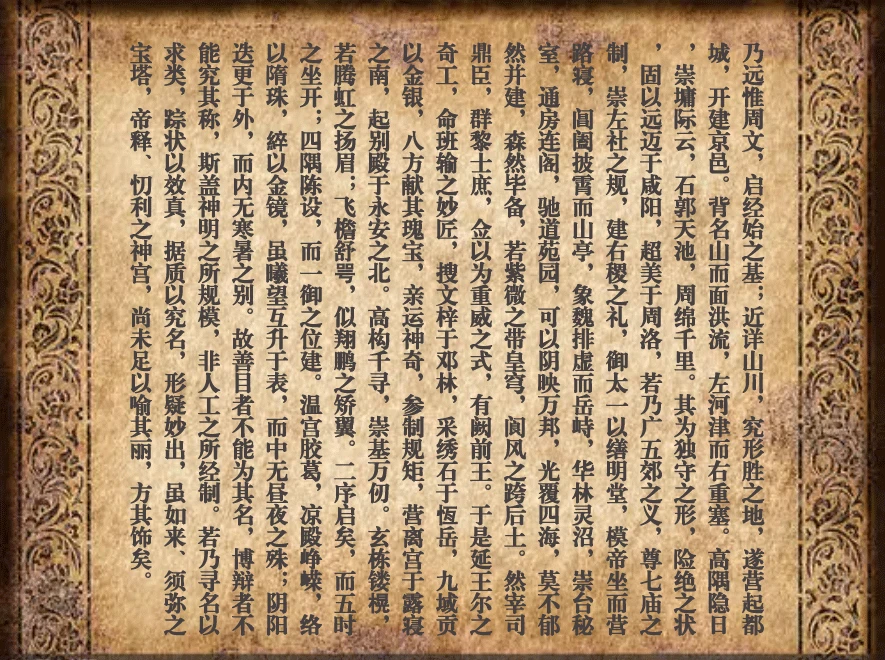 乃远惟周文，启经始之基；近详山川，究形胜之地，遂营起都
城，开建京邑。背名山而面洪流，左河津而右重塞。高隅隐日
，崇墉际云，石郭天池，周绵千里。其为独守之形，险绝之状
，固以远迈于咸阳，超美于周洛，若乃广五郊之义，尊七庙之
制，崇左社之规，建右稷之礼，御太一以缮明堂，模帝坐而营
路寝，阊阖披霄而山亭，象魏排虚而岳峙，华林灵沼，崇台秘
室，通房连阁，驰道苑园，可以阴映万邦，光覆四海，莫不郁
然并建，森然毕备，若紫微之带皇穹，阆风之跨后土。然宰司
鼎臣，群黎士庶，佥以为重威之式，有阙前王。于是延王尔之
奇工，命班输之妙匠，搜文梓于邓林，采绣石于恆岳，九域贡
以金银，八方献其瑰宝，亲运神奇，参制规矩，营离宫于露寝
之南，起别殿于永安之北。高构千寻，崇基万仞。玄栋镂榥，
若腾虹之扬眉；飞檐舒咢，似翔鹏之矫翼。二序启矣，而五时
之坐开；四隅陈设，而一御之位建。温宫胶葛，凉殿峥嵘，络
以隋珠，綷以金镜，虽曦望互升于表，而中无昼夜之殊；阴阳
迭更于外，而内无寒暑之别。故善目者不能为其名，博辩者不
能究其称，斯盖神明之所规模，非人工之所经制。若乃寻名以
求类，踪状以效真，据质以究名，形疑妙出，虽如来、须弥之
宝塔，帝释、忉利之神宫，尚未足以喻其丽，方其饰矣。